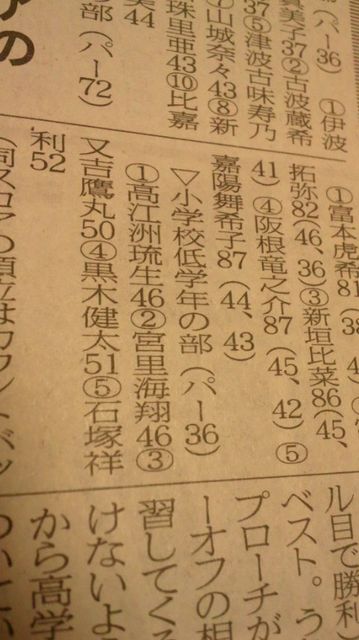 （パー36）①伊波
貴美子37②古波蔵希
37⑤津波古味寿乃
⑦山城奈々43⑧新
珠里亜43⑩比嘉
美44
の部（パー72）
①富本虎希81（38
拓弥82（46、36）③新垣比菜86（45、
41）④阪根竜之介87（45、42）⑤
嘉陽舞希子87（44、43）
▽小学校低学年の部（パー36）
①高江洲琉生46②宮里海翔46③
又吉鷹丸50④黒木健太51⑤石塚祥
利52
（同スコアの順位はカウントバッ
ル目で勝利
ベスト。う
プローチが
ーオフの
習してく
けないよ
から高学